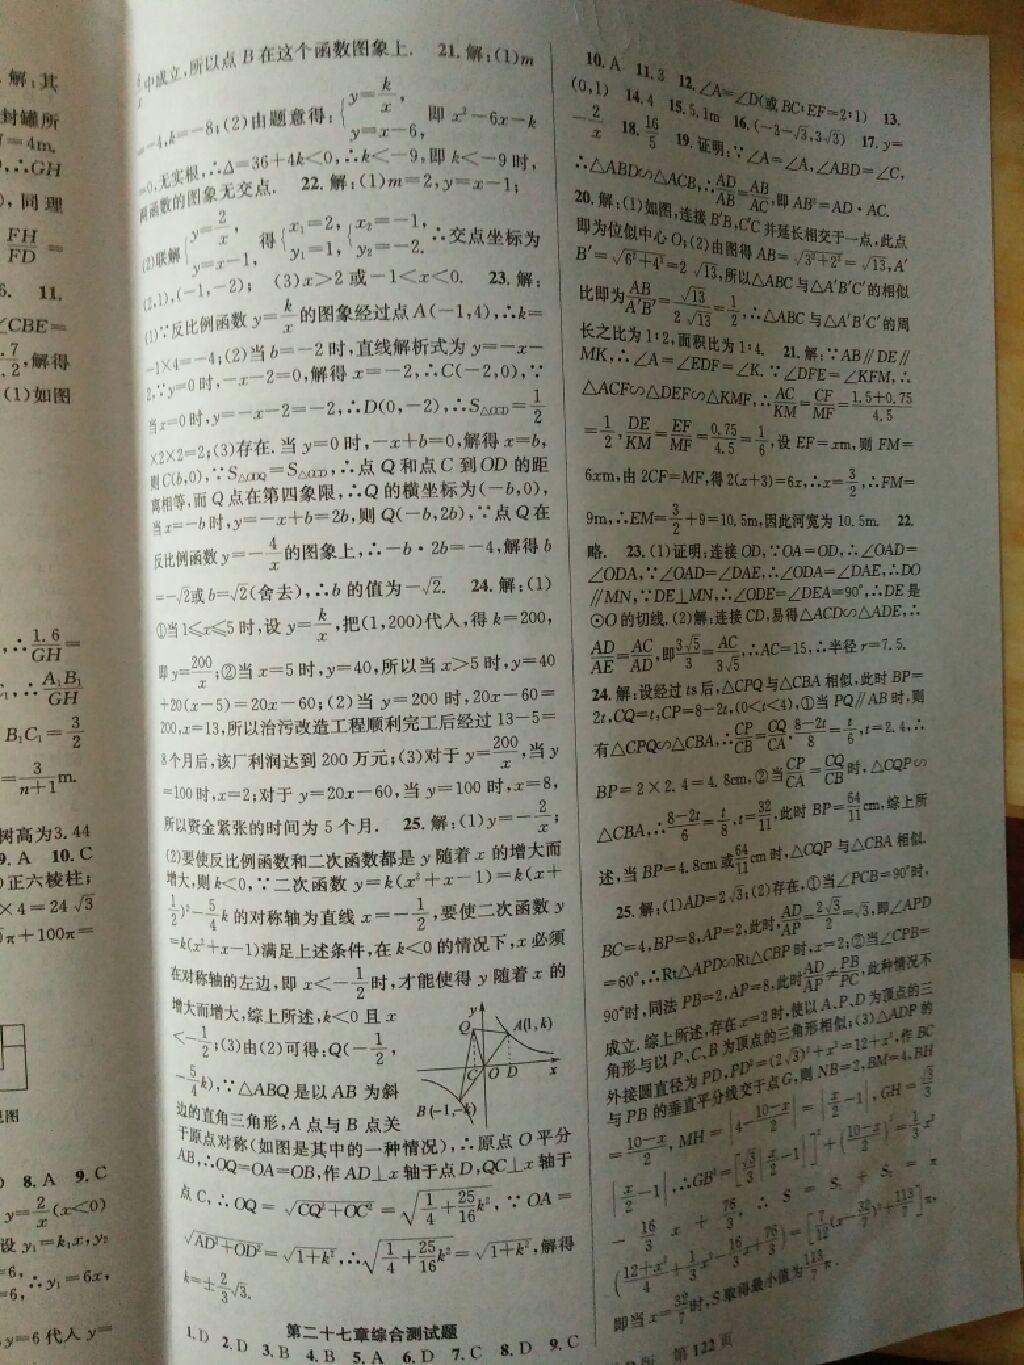 解:其
封罐所
=4m.
∴GH
同理
FH/FD=
6. 11.
∠CBE=
解得
(1)如图
∴1.6/GH=
∴A₁B₁/GH
B₁C₁=3/2
=3/(n+1)m.
树高为3.44
9. A 10. C
正六棱柱;
×4=24√3
π+100π=
8. A 9. C
y=2/x(x<0)
设y₁=k₁x,y₂
=6,
∴y₁=6x,
y=6代入y=
中成立,所以点B在这个函数图象上. 21. 解:(1)m
=-4,k=-8;(2)由题意得:{y=k/x, y=x-6, 即x²-6x-k
=0,无实根,∴Δ=36+4k<0,∴k<-9,即k<-9时,
两函数的图象无交点. 22. 解:(1)m=2,y=x-1;
(2)联解{y=2/x, y=x-1, 得{x₁=2, y₁=1, {x₂=-1, y₂=-2. ∴交点坐标为
(2,1),(-1,-2); (3)x>2或-1<x<0. 23. 解:
(1)∵反比例函数y=k/x的图象经过点A(-1,4),∴k=
-1×4=-4;(2)当b=-2时,直线解析式为y=-x-
2,∵y=0时,-x-2=0,解得x=-2,∴C(-2,0),∵
当x=0时,y=-x-2=-2,∴D(0,-2),∴S△OCD=1/2
×2×2=2;(3)存在. 当y=0时,-x+b=0,解得x=b,
则C(b,0),∵S△ODQ=S△OCD,∴点Q和点C到OD的距
离相等,而Q点在第四象限,∴Q的横坐标为(-b,0),
当x=-b时,y=-x+b=2b,则Q(-b,2b),∵点Q在
反比例函数y=-4/x的图象上,∴-b·2b=-4,解得b
=-√2或b=√2(舍去),∴b的值为-√2. 24. 解:(1)
①当1≤x≤5时,设y=k/x,把(1,200)代入,得k=200,
即y=200/x;②当x=5时,y=40,所以当x>5时,y=40
+20(x-5)=20x-60;(2)当y=200时,20x-60=
200,x=13,所以治污改造工程顺利完工后经过13-5=
8个月后,该厂利润达到200万元;(3)对于y=200/x,当y
=100时,x=2;对于y=20x-60,当y=100时,x=8,
所以资金紧张的时间为5个月. 25. 解:(1)y=-2/x;
(2)要使反比例函数和二次函数都是y随着x的增大而
增大,则k<0,∵二次函数y=k(x²+x-1)=k(x+
1/2)²-5/4k的对称轴为直线x=-1/2,要使二次函数y
=k(x²+x-1)满足上述条件,在k<0的情况下,x必须
在对称轴的左边,即x<-1/2时,才能使得y随着x的
增大而增大,综上所述,k<0且x
<-1/2;(3)由(2)可得:Q(-1/2,
-5/4k),∵△ABQ是以AB为斜
边的直角三角形,A点与B点关
于原点对称(如图是其中的一种情况),∴原点O平分
AB,∴OQ=OA=OB,作AD⊥x轴于点D,QC⊥x轴于
点C,∴OQ=√(CQ²+OC²)=√(1/4+25/16k²),∵OA=
√(AD²+OD²)=√(1+k²),∴√(1/4+25/16k²)=√(1+k²),解得
k=±2/3√3.
y
Q
A(1,k)
C O D x
B(-1,-k)
第二十七章综合测试题
1. D 2. D 3. B 4. B 5. A 6. D 7. C 8. D 9. C
10. A 11. 3 12. ∠A=∠D(或BC:EF=2:1) 13.
(0,1) 14. 4 15. 5.1m 16. (-3-√3,3√3) 17. y=
-2/x 18. 16/5 19. 证明:∵∠A=∠A,∠ABD=∠C,
∴△ABD∽△ACB,∴AD/AB=AB/AC,即AB²=AD·AC.
20. 解:(1)如图,连接B′B,C′C并延长相交于一点,此点
即为位似中心O;(2)由图得AB=√(3²+2²)=√13,A′
B′=√(6²+4²)=2√13,所以△ABC与△A′B′C′的相似
比即为AB/A′B′=√13/2√13=1/2,∴△ABC与△A′B′C′的周
长之比为1:2,面积比为1:4. 21. 解:∵AB∥DE∥
MK,∴∠A=∠EDF=∠K.∵∠DFE=∠KFM,∴
△ACF∽△DEF∽△KMF,∴AC/KM=CF/MF=(1.5+0.75)/4.5
=1/2,DE/KM=EF/MF=0.75/4.5=1/6,设EF=xm,则FM=
6xm,由2CF=MF,得2(x+3)=6x,∴x=3/2,∴FM=
9m,∴EM=3/2+9=10.5m,因此河宽为10.5m. 22.
略. 23. (1)证明:连接OD,∵OA=OD,∴∠OAD=
∠ODA,∵∠OAD=∠DAE,∴∠ODA=∠DAE,∴DO
∥MN,∵DE⊥MN,∴∠ODE=∠DEA=90°,∴DE是
⊙O的切线,(2)解:连接CD,易得△ACD∽△ADE,∴
AD/AE=AC/AD,即3√5/3=AC/3√5,∴AC=15,∴半径r=7.5.
24. 解:设经过ts后,△CPQ与△CBA相似,此时BP=
2t,CQ=t,CP=8-2t,(0<t<4),①当PQ∥AB时,则
有△CPQ∽△CBA,∴CP/CB=CQ/CA,(8-2t)/8=t/6,t=2.4,∴
BP=2×2.4=4.8cm,②当CP/CA=CQ/CB时,△CQP∽
△CBA,∴(8-2t)/6=t/8,t=32/11,此时BP=64/11cm,综上所
述,当BP=4.8cm或64/11cm时,△CQP与△CBA相似.
25. 解:(1)AD=2√3;(2)存在,①当∠PCB=90°时,
BC=4,BP=8,AP=2,此时,AD/AP=2√3/2=√3,即∠APD
=60°,∴Rt△APD∽Rt△CBP时,x=2;②当∠CPB=
90°时,同法PB=2,AP=8,此时AD/AP≠PB/PC,此种情况不
成立. 综上所述,存在x=2时,使以A、P、D为顶点的三
角形与以P、C、B为顶点的三角形相似;(3)△ADP的
外接圆直径为PD,PD²=(2√3)²+x²=12+x²,作BC
与PB的垂直平分线交于点G,则NB=2,BM=4,BH
=(10-x)/2,MH=|4-(10-x)/2|=|x/2-1|,GH=√3/3
|x/2-1|,∴GB²=[√3/3|x/2-1|]²+((10-x)/2)²=1/3x²
-16/3x+76/3,∴S=S₁+S₂=π
((12+x²)/4+1/3x²-16/3x+76/3)=[7/12(x-32/7)²+113/7]π,
即当x=32/7时,S取得最小值为113/7π.
第122页